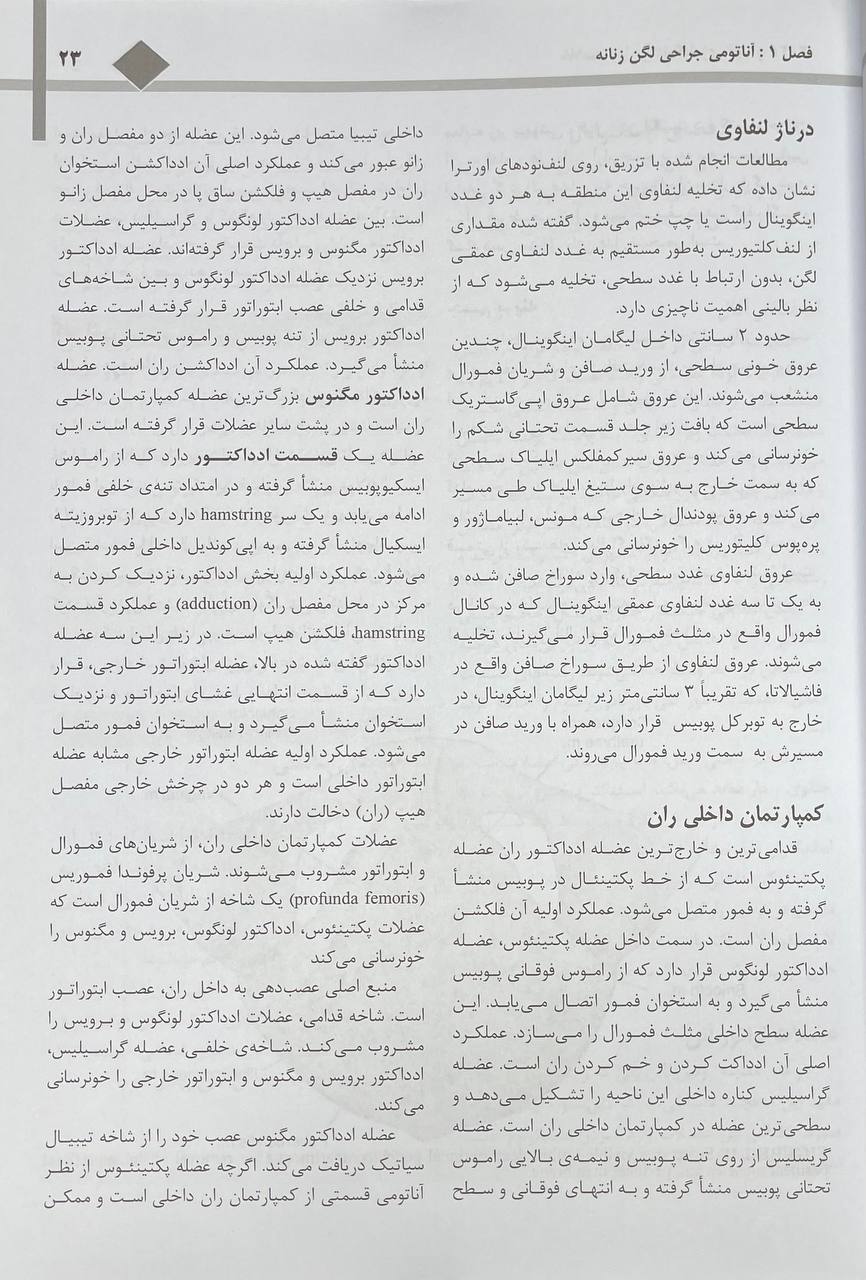 فصل ۱ : آناتومی جراحی لگن زنانه
۲۳
درناژ لنفاوی
مطالعات انجام شده با تزریق، روی لنف‌نودهای اورترا
نشان داده که تخلیه لنفاوی این منطقه به هر دو غدد
اینگوینال راست یا چپ ختم می‌شود. گفته شده مقداری
از لنف‌کلتیوریس به‌طور مستقیم به غدد لنفاوی عمقی
لگن، بدون ارتباط با غدد سطحی، تخلیه می‌شود که از
نظر بالینی اهمیت ناچیزی دارد.
حدود ۲ سانتی داخل لیگامان اینگوینال، چندین
عروق خونی سطحی، از ورید صافن و شریان فمورال
منشعب می‌شوند. این عروق شامل عروق اپی‌گاستریک
سطحی است که بافت زیر جلد قسمت تحتانی شکم را
خونرسانی می‌کند و عروق سیرکمفلکس ایلیاک سطحی
که به سمت خارج به سوی ستیغ ایلیاک طی مسیر
می‌کند و عروق پودندال خارجی که مونس، لبیاماژور و
پره‌پوس کلیتوریس را خونرسانی می‌کند.
عروق لنفاوی غدد سطحی، وارد سوراخ صافن شده و
به یک تا سه غدد لنفاوی عمقی اینگوینال که در کانال
فمورال واقع در مثلث فمورال قرار می‌گیرند، تخلیه
می‌شوند. عروق لنفاوی از طریق سوراخ صافن واقع در
فاشیالاتا، که تقریباً ۳ سانتی‌متر زیر لیگامان اینگوینال، در
خارج به توبرکل پوبیس قرار دارد، همراه با ورید صافن در
مسیرش به سمت ورید فمورال می‌روند.
کمپارتمان داخلی ران
قدامی‌ترین و خارج‌ترین عضله ادداکتور ران عضله
پکتینئوس است که از خط پکتینئال در پوبیس منشأ
گرفته و به فمور متصل می‌شود. عملکرد اولیه آن فلکشن
مفصل ران است. در سمت داخل عضله پکتینئوس، عضله
ادداکتور لونگوس قرار دارد که از راموس فوقانی پوبیس
منشأ می‌گیرد و به استخوان فمور اتصال می‌یابد. این
عضله سطح داخلی مثلث فمورال را می‌سازد. عملکرد
اصلی آن ادداکت کردن و خم کردن ران است. عضله
گراسیلیس کناره داخلی این ناحیه را تشکیل می‌دهد و
سطحی‌ترین عضله در کمپارتمان داخلی ران است. عضله
گریسلیس از روی تنه پوبیس و نیمه‌ی بالایی راموس
تحتانی پوبیس منشأ گرفته و به انتهای فوقانی و سطح
داخلی تیبیا متصل می‌شود. این عضله از دو مفصل ران و
زانو عبور می‌کند و عملکرد اصلی آن ادداکشن استخوان
ران در مفصل هیپ و فلکشن ساق پا در محل مفصل زانو
است. بین عضله ادداکتور لونگوس و گراسیلیس، عضلات
ادداکتور مگنوس و برویس قرار گرفته‌اند. عضله ادداکتور
برویس نزدیک عضله ادداکتور لونگوس و بین شاخه‌های
قدامی و خلفی عصب ابتوراتور قرار گرفته است. عضله
ادداکتور برویس از تنه پوبیس و راموس تحتانی پوبیس
منشأ می‌گیرد. عملکرد آن ادداکشن ران است. عضله
ادداکتور مگنوس بزرگ‌ترین عضله کمپارتمان داخلی
ران است و در پشت سایر عضلات قرار گرفته است. این
عضله یک قسمت ادداکتور دارد که از راموس
ایسکیوپوبیس منشأ گرفته و در امتداد تنه‌ی خلفی فمور
ادامه می‌یابد و یک سر hamstring دارد که از توبروزیته
ایسکیال منشأ گرفته و به اپی‌کوندیل داخلی فمور متصل
می‌شود. عملکرد اولیه بخش ادداکتور، نزدیک کردن به
مرکز در محل مفصل ران (adduction) و عملکرد قسمت
hamstring، فلکشن هیپ است. در زیر این سه عضله
ادداکتور گفته شده در بالا، عضله ابتوراتور خارجی، قرار
دارد که از قسمت انتهایی غشای ابتوراتور و نزدیک
استخوان منشأ می‌گیرد و به استخوان فمور متصل
می‌شود. عملکرد اولیه عضله ابتوراتور خارجی مشابه عضله
ابتوراتور داخلی است و هر دو در چرخش خارجی مفصل
هیپ (ران) دخالت دارند.
عضلات کمپارتمان داخلی ران، از شریان‌های فمورال
و ابتوراتور مشروب می‌شوند. شریان پرفوندا فموریس
(profunda femoris) یک شاخه از شریان فمورال است که
عضلات پکتینئوس، ادداکتور لونگوس، برویس و مگنوس را
خونرسانی می‌کند
منبع اصلی عصب‌دهی به داخل ران، عصب ابتوراتور
است. شاخه قدامی، عضلات ادداکتور لونگوس و برویس را
مشروب می‌کند. شاخه‌ی خلفی، عضله گراسیلیس،
ادداکتور برویس و مگنوس و ابتوراتور خارجی را خونرسانی
می‌کند.
عضله ادداکتور مگنوس عصب خود را از شاخه تیبیال
سیاتیک دریافت می‌کند. اگرچه عضله پکتینئوس از نظر
آناتومی قسمتی از کمپارتمان ران داخلی است و ممکن